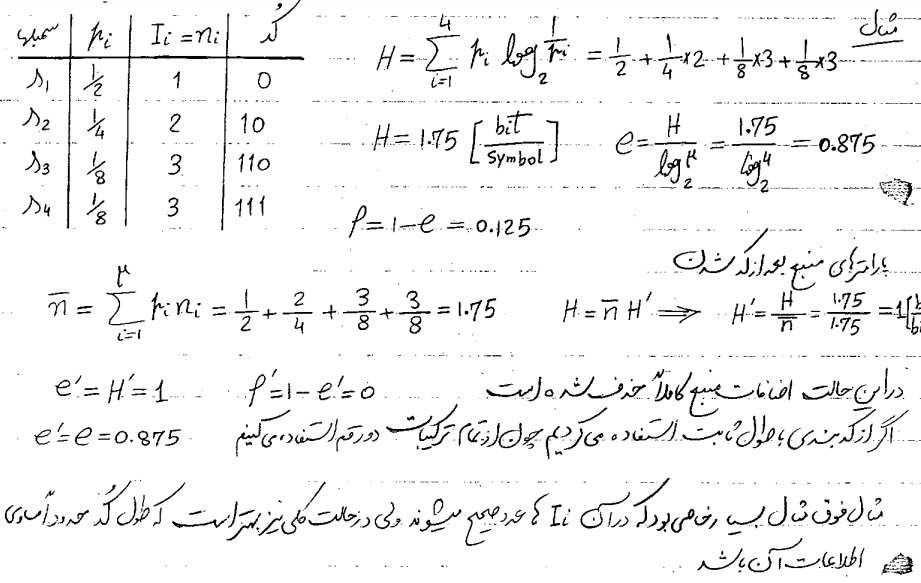 مثال
سمبل p_i I_i = n_i کد
s₁ 1/2 1 0
s₂ 1/4 2 10
s₃ 1/8 3 110
s₄ 1/8 3 111
H = Σ_{i=1}^{4} p_i log₂ 1/p_i = 1/2 + 1/4 x2 + 1/8 x3 + 1/8 x3
H = 1.75 [bit/Symbol] e = H/log₂ μ = 1.75/log₂ 4 = 0.875
ρ = 1 - e = 0.125
پارامترهای منبع بعد از کد شدن
n̄ = Σ_{i=1}^{μ} p_i n_i = 1/2 + 2/4 + 3/8 + 3/8 = 1.75 H = n̄ H' ⟹ H' = H/n̄ = 1.75/1.75 = 1
e' = H' = 1 ρ' = 1 - e' = 0 در این حالت اضافات منبع کاملاً حذف شده است
اگر از کد بندی با طول ثابت استفاده می کردیم چون از تمام ترکیبات دو رقم استفاده می کنیم e' = e = 0.875
مثال فوق مثال بسیار خاصی بود که در آن I_i ها عدد صحیح میشوند ولی در حالت کلی نیز بهتر است که طول کد حدوداً مساوی
اطلاعات آن باشد